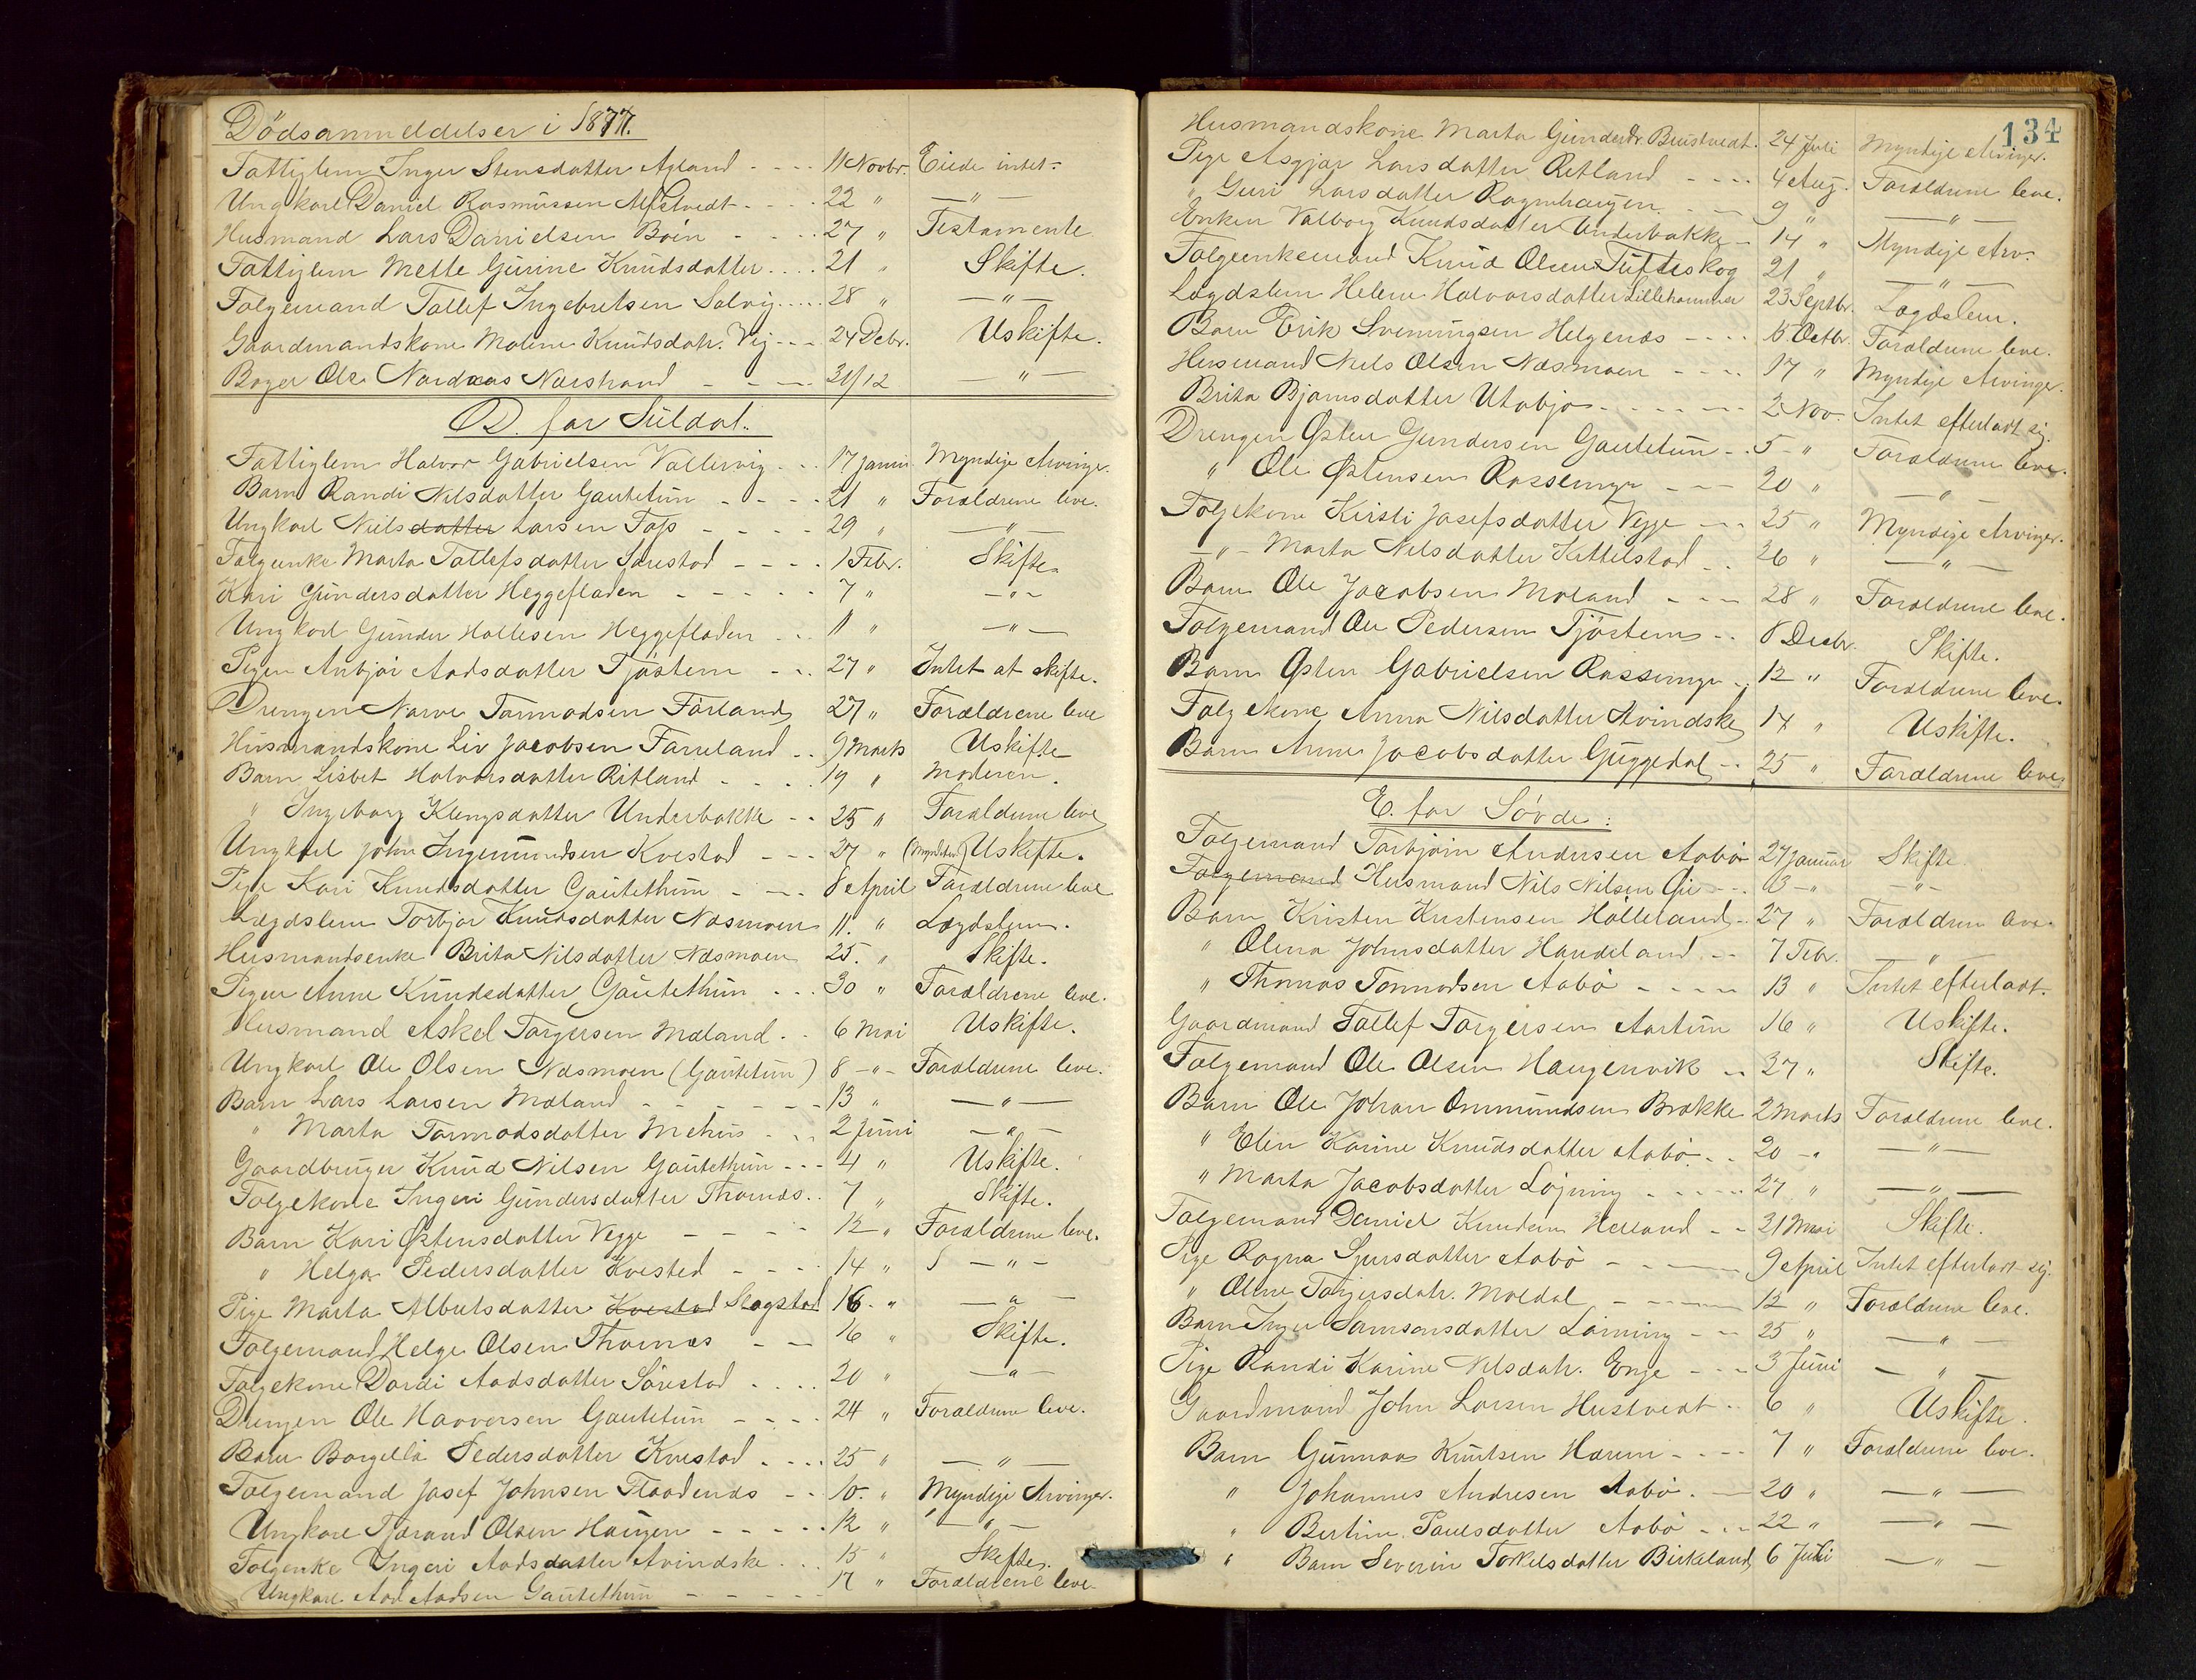 Dödsanmeldelser i 1877.
Fattiglem Inger Stensdatter Apland - - - 11 Novbr. Eiede intet -
Ungkarl Daniel Rasmussen - - - 22 " — " —
Husmand Lars Danielsen Böin - - - 27 " Testamente
Fattiglem Mette Gurine Knudsdatter - - - 21 " Skifte.
Folgemand Tollef Ingebretsen Solvig - - - 28 " — " —
Gaardmandskone Malene Knudsdatr. Vig - - - 24 Debr. Uskifte.
Ole Nordnas Narstrand - - - 31/12 — " —
D. for Suldal.
Fattiglem Halvor Gabrielsen Vallervig - - - 17 Januar Myndige Arvinger.
Barn Randi Nilsdatter Gautetun - - - 21 " Forældrene leve.
Ungkarl Niels datter Larsen - - - 29 " — " —
Folgeenke Marta Tollefsdatter Sørestad - - - 1 Febr. Skifte
Kari Gundersdatter Heggefladen - - - 7 " — " —
Ungkarl Gunder Hallesen Heggefladen - - - 11 " — " —
Pigen Anbjør Aadsdatter Tjøstem - - - 27 " Intet at skifte.
Drengen Narve Tormodsen Förland 27 " Forældrene leve
Husmandskone Liv Jacobsen Farreland - - 9 Marts Uskifte
Barn Lisbet Halvarsdatter Ritland - - - 19 " Moderen.
" Ingeborg Klengsdatter Underbakke - - 25 " Forældrene leve
Ungkarl John Ingemundsen Kvestad - - - 27 " Uskifte.
Pige Kari Knudsdatter Gautethun - - - 8 April Forældrene leve
Lægdslem Torbjør Knutsdatter Næsmoen 11. " Lægdslem.
Husmandsenke Brita Nilsdatter Næsmoen 25. " Skifte.
Pigen Anne Knudsdatter Gautethun - - - 30 " Forældrene leve.
Husmand Askel Torgersen Mæland - - 6 Mai Uskifte.
Ungkarl Ole Olsen Næsmoen (Gautetun) 8 - " - Forældrene leve.
Barn Lars Larsen Mæland - - - 13 " — " —
" Marta Tormodsdatter Mehus - - - 2 Juni — " —
Gaardbruger Knud Nilsen Gautethun - - - 4 " Uskifte.
Folgekone Ingeri Gundersdatter Thornes - - 7 " Skifte.
Barn Kari Østensdatter Vegge - - - 12 " Forældrene leve.
" Helga Pedersdatter Kvested - - - 14 " — " —
Pige Marta Albertsdatter Kvestad Slagstad 16. " — " —
Folgemand Helge Olsen Thornes - - 16 " Skifte.
Folgekone Dordi Aadsdatter Sörestad - - - 20 " — " —
Drengen Ole Havversen Gautetun - - - 24 " Forældrene leve.
Barn Borgella Pedersdatter Kvestad - - - 25 " — " —
Folgemand Josef Johnsen Flaadenes - - 10. " Myndige Arvinger.
Ungkarl Tjærand Olsen Haugen - - - 12 " — " —
Folgenke Ingeri Aadsdatter Avindske - - 15 " Skifte.
Ungkarl Aad Aadsen Gautethun - - - 17 " Forældrene leve
134
Husmandskone Marta Gundersdr. Brustvedt. 24 Juli Myndige Arvinger.
Pige Asgjær Larsdatter Retland - - - 4 Aug. Forældrene leve.
" Guri Larsdatter Ragnhaugen - - 9 " — " —
Enken Valborg Knudsdatter Underbakke - 14 " Myndige Arv.
Folgeenkemand Knud Olsen Tufteskog 21 " — " —
Lægdslem Helene Halvorsdatter Lillehammer 23 Septbr. Lægdslem.
Barn Erik Svenungsen Helgenæs - - - 15 Octbr. Forældrene leve.
Husmand Niels Olsen Næsmoen - - - 17 " Myndige Arvinger.
Brita Bjarnsdatter Utabjø - - - 2 Nov. Intet efterladt sig.
Drengen Østen Gundersen Gautetun - - 5 - " Forældrene leve.
" Ole Østensen Rossemyr - - - 20 " — " —
Folgekone Kirsti Josefsdatter Vegge - - - 25 " Myndige Arvinger.
— " — Marta Nilsdatter Kattelstad - - 26 " — " —
Barn Ole Jacobsen Moland - - - 28 " Forældrene leve.
Folgemand Ole Pedersen Tjöstem - - 8 Decbr. Skifte.
Barn Østen Gabrielsen Rossemyr - - 12 " Forældrene leve.
Folgekone Anna Nilsdatter Avindske 14 " Uskifte.
Barn Anne Jacobsdatter Guggedal - - 25 " Forældrene leve
E. for Sövde:
Folgemand Torbjørn Andersen Aabø 27 Januar Skifte
Folgemand Husmand Nils Nilsen - - - 13 - " — " —
Barn Kristen Kristensen Hölleland - - 27 " Forældrene leve.
" Olena Johnsdatter Handeland - - 7 Febr. — " —
" Thomas Tormodsen Aabö - - - 13 " Intet efterladt.
Gaardmand Tollef Torgersen Aartun 16 " Uskifte.
Folgemand Ole Olsen Haugenvik - - 27 " Skifte.
Barn Ole Johan Ommundsen Brække 2 Marts Forældrene leve.
" Elen Karine Knudsdatter Aabö - - 20 - " — " —
" Marta Jacobsdatter Løjning - - - 27 " — " —
Folgemand Daniel Knudsen Helland - - 21 Mai Skifte.
Pige Ragna Sjursdatter Aabö - - - 9 April Intet efterladt sig.
" Olene Torgersdatr. Moldal - - - 12 " Forældrene leve.
Barn Inger Samsonsdatter Löining - - - 25 " — " —
Pige Randi Karine Nilsdatr. Enge - - - 3 Juni — " —
Gaardmand John Larsen Hustvedt - - 6 " Uskifte.
Barn Gunnar Knutsen Harum - - - 7 " Forældrene leve.
" Johannes Andresen Aabö - - 20 " — " —
" Bertine Paulsdatter Aabö - - - 22 " — " —
" Barn Severin Torkelsdatter Birkeland 6 Juli — " —